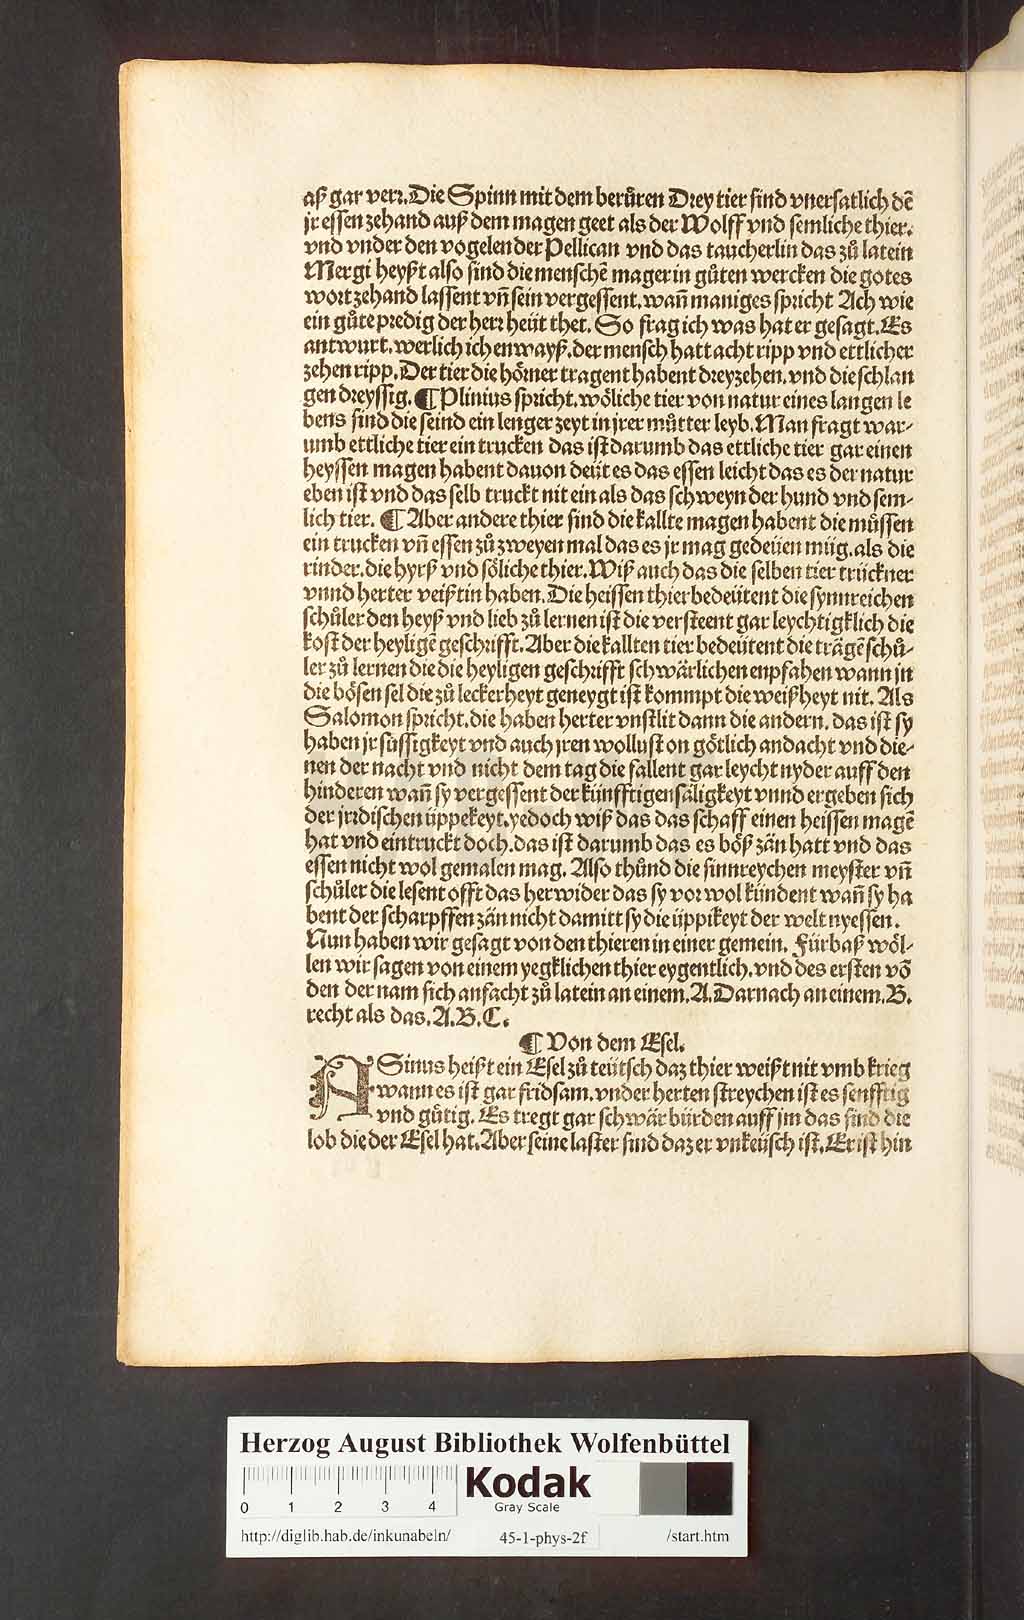 aß gar verr. Die Spinn mit dem berůren Drey tier sind vnersatlich dē
jr essen zehand auß dem magen geet als der Wolff vnd semliche thier.
vnd vnder den vogelen der Pellican vnd das taucherlin das zů latein
Mergi heyßt also sind die menschē mager in gůten wercken die gotes
wort zehand lassent vñ sein vergessent. wañ maniges spricht Ach wie
ein gůte predig der herr heüt thet. So frag ich was hat er gesagt. Es
antwurt. werlich ich enwayß. der mensch hatt acht ripp vnd ettlicher
zehen ripp. Der tier die hörner tragent habent dreyzehen. vnd die schlan
gen dreyssig. ¶ Plinius spricht. wöliche tier von natur eines langen le
bens sind die seind ein lenger zeyt in jrer můtter leyb. Man fragt war-
umb ettliche tier ein trucken das ist darumb das ettliche tier gar einen
heyssen magen habent dauon deüt es das essen leicht das es der natur
eben ist vnd das selb truckt nit ein als das schweyn der hund vnd sem-
lich tier. ¶ Aber andere thier sind die kallte magen habent die müssen
ein trucken vñ essen zů zweyen mal das es jr mag gedeüen müg. als die
rinder. die hyrß vnd söliche thier. Wiß auch das die selben tier trückner
vnnd herter veißtin haben. Die heissen thier bedeütent die synnreichen
schůler den heyß vnd lieb zů lernen ist die versteent gar leychtigklich die
kost der heyligē geschrifft. Aber die kallten tier bedeütent die trägē schů-
ler zů lernen die die heyligen geschrifft schwärlichen enpfahen wann in
die bösen sel die zů leckerheyt geneygt ist kommpt die weißheyt nit. Als
Salomon spricht. die haben herter vnstlit dann die andern. das ist sy
haben jr süssigkeyt vnd auch jren wollust on götlich andacht vnd die-
nen der nacht vnd nicht dem tag die fallent gar leycht nyder auff den
hinderen wañ sy vergessent der künfftigen säligkeyt vnnd ergeben sich
der jrrdischen üppekeyt. yedoch wiß das das schaff einen heissen magē
hat vnd eintruckt doch. das ist darumb das es böß zän hatt vnd das
essen nicht wol gemalen mag. Also thůnd die sinnreychen meyster vñ
schůler die lesent offt das herwider das sy vor wol kündent wañ sy ha
bent der scharpffen zän nicht damitt sy die üppikeyt der welt nyessen.
Nun haben wir gesagt von den thieren in einer gemein. Fürbaß wöl-
len wir sagen von einem yegklichen thier eygentlich. vnd des ersten vō
den der nam sich anfacht zů latein an einem. A. Darnach an einem. B.
recht als das. A. B. C.
¶ Von dem Esel.
ASinus heißt ein Esel zů teütsch daz thier weißt nit vmb krieg
wann es ist gar fridsam. vnder herten streychen ist es senfftig
vnd gůtig. Es tregt gar schwär bürden auff jm das sind die
lob die der Esel hat. Aber seine laster sind daz er vnkeüsch ist. Er ist hin
Herzog August Bibliothek Wolfenbüttel
0 1 2 3 4
Kodak
Gray Scale
http://diglib.hab.de/inkunabeln/ 45-1-phys-2f /start.htm